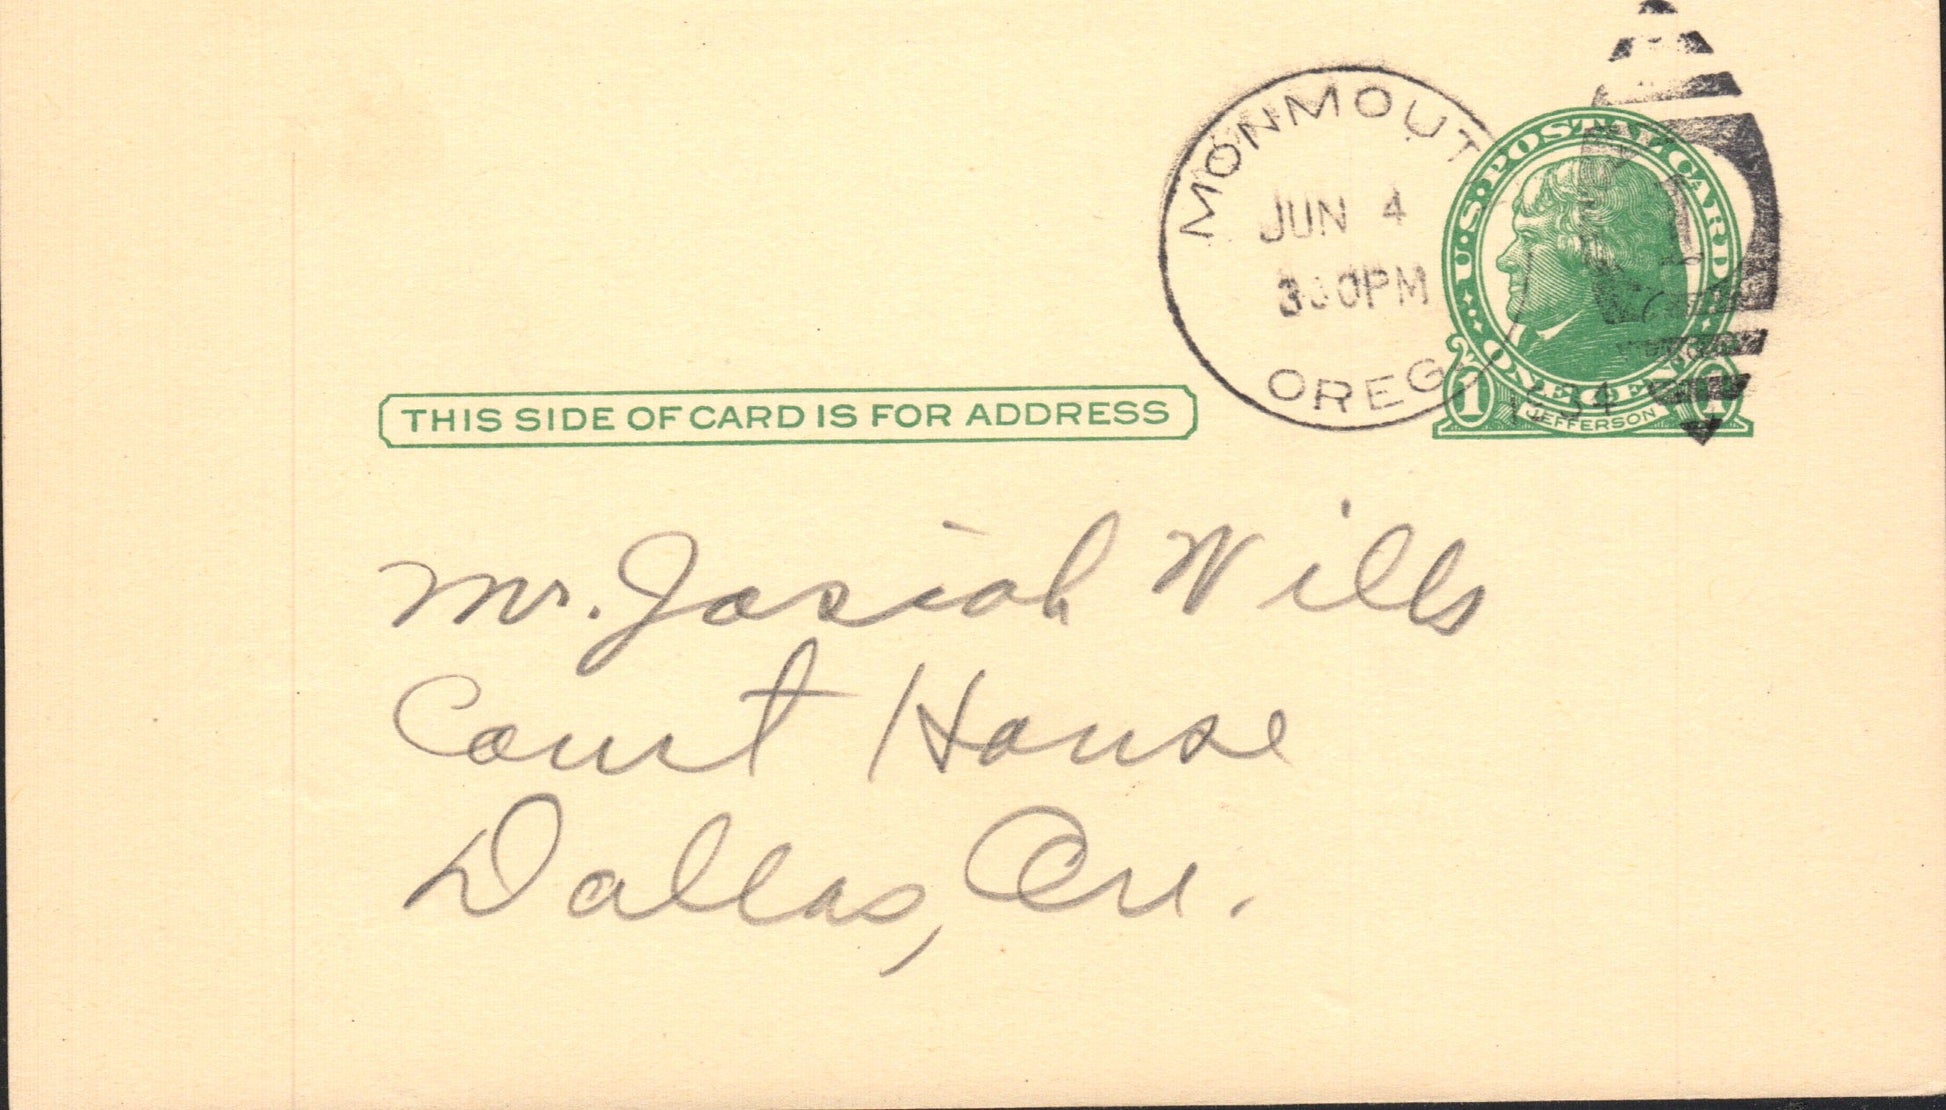 MONMOUT
JUN 4
3 30PM
OREG
1934
U.S. POSTAL CARD
ONE CENT
1 1
JEFFERSON
THIS SIDE OF CARD IS FOR ADDRESS
Mr. Josiah Wills
Court House
Dallas, Ore.